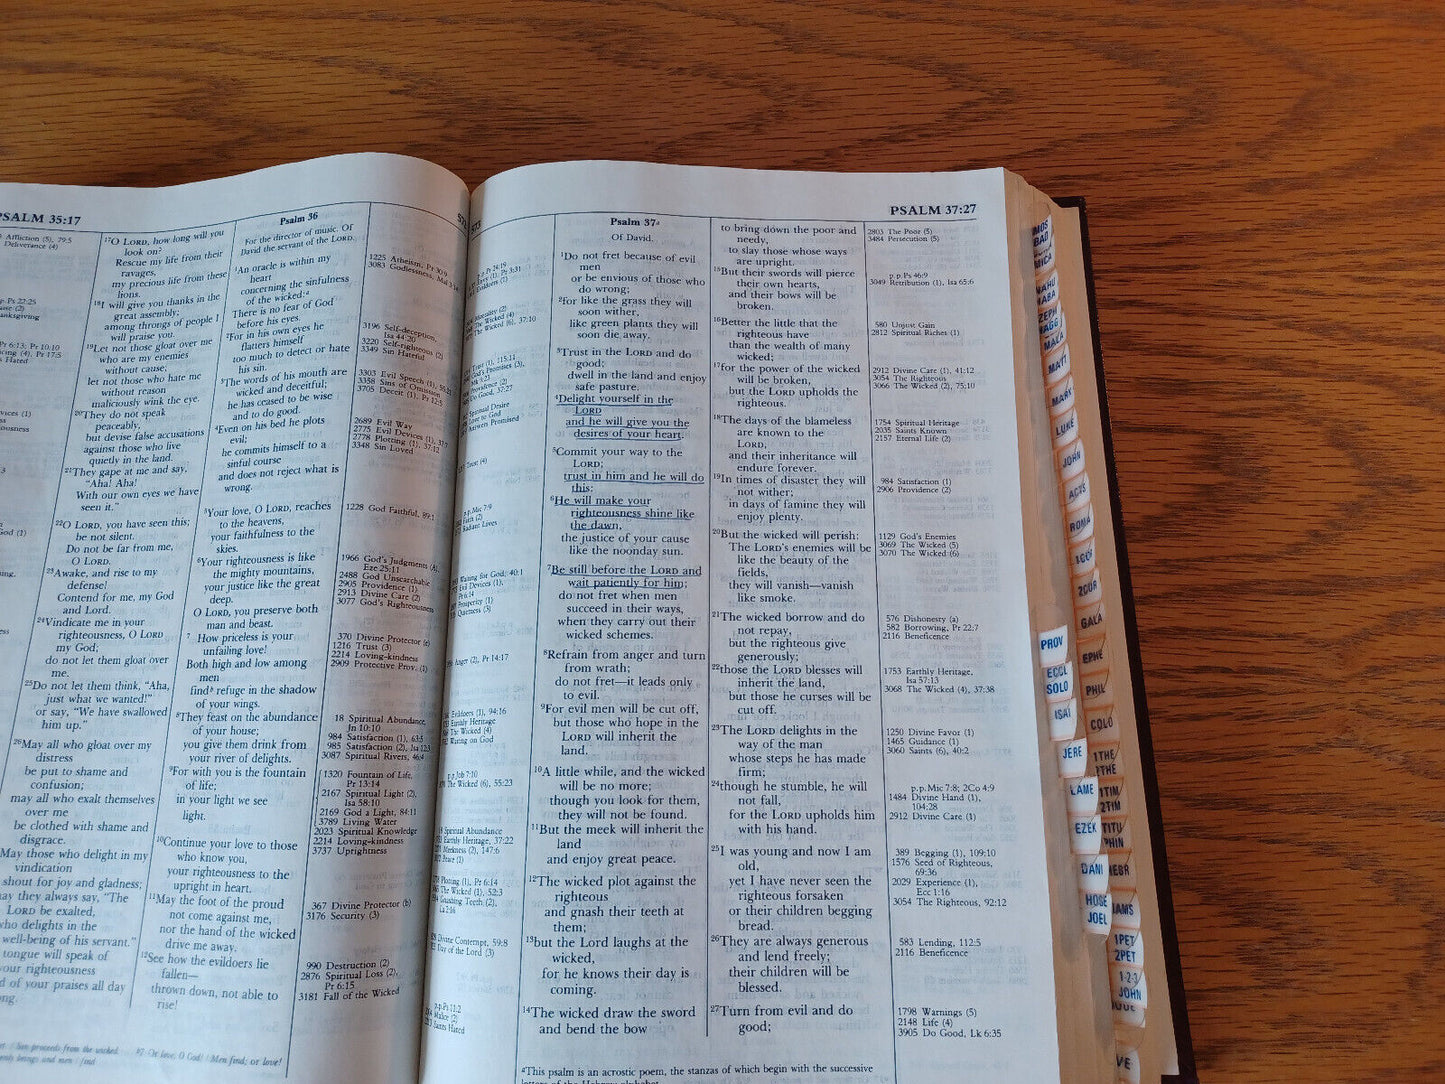 PSALM 35:17
Affliction (5), 79:5
Deliverance (4)
p.p.Ps 22:25
Pr 6:13; Pr 10:10
(4), Pr 17:5
Hated
17O LORD, how long will you
look on?
Rescue my life from their
ravages,
my precious life from these
lions.
18I will give you thanks in the
great assembly;
among throngs of people I
will praise you.
19Let not those gloat over me
who are my enemies
without cause;
let not those who hate me
without reason
maliciously wink the eye.
20They do not speak
peaceably,
but devise false accusations
against those who live
quietly in the land.
21They gape at me and say,
"Aha! Aha!
With our own eyes we have
seen it."
22O LORD, you have seen this;
be not silent.
Do not be far from me,
O LORD.
23Awake, and rise to my
defense!
Contend for me, my God
and Lord.
24Vindicate me in your
righteousness, O LORD
my God;
do not let them gloat over
me.
25Do not let them think, "Aha,
just what we wanted!"
or say, "We have swallowed
him up."
26May all who gloat over my
distress
be put to shame and
confusion;
may all who exalt themselves
over me
be clothed with shame and
disgrace.
May those who delight in my
vindication
shout for joy and gladness;
may they always say, "The
LORD be exalted,
who delights in the
well-being of his servant."
tongue will speak of
your righteousness
and of your praises all day
long.
Psalm 36
For the director of music. Of
David the servant of the LORD.
1An oracle is within my
heart
concerning the sinfulness
of the wicked:a
There is no fear of God
before his eyes.
2For in his own eyes he
flatters himself
too much to detect or hate
his sin.
3The words of his mouth are
wicked and deceitful;
he has ceased to be wise
and to do good.
4Even on his bed he plots
evil;
he commits himself to a
sinful course
and does not reject what is
wrong.
5Your love, O LORD, reaches
to the heavens,
your faithfulness to the
skies.
6Your righteousness is like
the mighty mountains,
your justice like the great
deep.
O LORD, you preserve both
man and beast.
7How priceless is your
unfailing love!
Both high and low among
men
findb refuge in the shadow
of your wings.
8They feast on the abundance
of your house;
you give them drink from
your river of delights.
9For with you is the fountain
of life;
in your light we see
light.
10Continue your love to those
who know you,
your righteousness to the
upright in heart.
11May the foot of the proud
not come against me,
nor the hand of the wicked
drive me away.
12See how the evildoers lie
fallen—
thrown down, not able to
rise!
b7 Or love, O God! / Men find; or love!
1225 Atheism, Pr 30:9
3083 Godlessness, Mal 3:14
3196 Self-deception,
Isa 44:20
3220 Self-righteous (2)
3349 Sin Hateful
3303 Evil Speech (1), 55:21
3358 Sins of Omission
3705 Deceit (1), Pr 12:5
2689 Evil Way
2775 Evil Devices (1), 37:7
2778 Plotting (1), 37:12
3348 Sin Loved
1228 God Faithful, 89:1
1966 God's Judgments (A),
Eze 25:11
2488 God Unsearchable
2905 Providence (1)
2913 Divine Care (2)
3077 God's Righteousness
370 Divine Protector (e)
1216 Trust (3)
2214 Loving-kindness
2909 Protective Prov. (1)
18 Spiritual Abundance,
Jn 10:10
984 Satisfaction (1), 63:5
985 Satisfaction (2), Isa 12:3
3087 Spiritual Rivers, 46:4
1320 Fountain of Life,
Pr 13:14
2167 Spiritual Light (2),
Isa 58:10
2169 God a Light, 84:11
3789 Living Water
2023 Spiritual Knowledge
2214 Loving-kindness
3737 Uprightness
367 Divine Protector (b)
3176 Security (3)
990 Destruction (2)
2876 Spiritual Loss (2),
Pr 6:15
3181 Fall of the Wicked
573
PSALM 37:27
The Wicked (4)
The Wicked (6), 37:10
Do Good, 37:27
Spiritual Desire
Love to God
Answers Promised
Trust (4)
p.p.Mic 7:9
Radiant Lives
Waiting for God, 40:1
Evil Devices (1),
Pr 6:14
Prosperity (1)
Quietness (3)
Anger (2), Pr 14:17
Evildoers (1), 94:16
Earthly Heritage
The Wicked (4)
Waiting on God
p.p.Job 7:10
The Wicked (6), 55:23
Spiritual Abundance
Earthly Heritage, 37:22
Meekness (2), 147:6
Peace (1)
Plotting (1), Pr 6:14
The Wicked (1), 52:3
Gnashing Teeth, (2),
La 2:16
Divine Contempt, 59:8
Day of the Lord (3)
p.p.Ps 11:2
Malice (2)
Saints Hated
Psalm 37a
Of David.
1Do not fret because of evil
men
or be envious of those who
do wrong;
2for like the grass they will
soon wither,
like green plants they will
soon die away.
3Trust in the LORD and do
good;
dwell in the land and enjoy
safe pasture.
4Delight yourself in the
LORD
and he will give you the
desires of your heart.
5Commit your way to the
LORD;
trust in him and he will do
this:
6He will make your
righteousness shine like
the dawn,
the justice of your cause
like the noonday sun.
7Be still before the LORD and
wait patiently for him;
do not fret when men
succeed in their ways,
when they carry out their
wicked schemes.
8Refrain from anger and turn
from wrath;
do not fret—it leads only
to evil.
9For evil men will be cut off,
but those who hope in the
LORD will inherit the
land.
10A little while, and the wicked
will be no more;
though you look for them,
they will not be found.
11But the meek will inherit the
land
and enjoy great peace.
12The wicked plot against the
righteous
and gnash their teeth at
them;
13but the Lord laughs at the
wicked,
for he knows their day is
coming.
14The wicked draw the sword
and bend the bow
aThis psalm is an acrostic poem, the stanzas of which begin with the successive
letters of the Hebrew alphabet.
to bring down the poor and
needy,
to slay those whose ways
are upright.
15But their swords will pierce
their own hearts,
and their bows will be
broken.
16Better the little that the
righteous have
than the wealth of many
wicked;
17for the power of the wicked
will be broken,
but the LORD upholds the
righteous.
18The days of the blameless
are known to the
LORD,
and their inheritance will
endure forever.
19In times of disaster they will
not wither;
in days of famine they will
enjoy plenty.
20But the wicked will perish:
The LORD's enemies will be
like the beauty of the
fields,
they will vanish—vanish
like smoke.
21The wicked borrow and do
not repay,
but the righteous give
generously;
22those the LORD blesses will
inherit the land,
but those he curses will be
cut off.
23The LORD delights in the
way of the man
whose steps he has made
firm;
24though he stumble, he will
not fall,
for the LORD upholds him
with his hand.
25I was young and now I am
old,
yet I have never seen the
righteous forsaken
or their children begging
bread.
26They are always generous
and lend freely;
their children will be
blessed.
27Turn from evil and do
good;
2803 The Poor (5)
3484 Persecution (5)
p.p.Ps 46:9
3049 Retribution (1), Isa 65:6
580 Unjust Gain
2812 Spiritual Riches (1)
2912 Divine Care (1), 41:12
3054 The Righteous
3066 The Wicked (2), 75:10
1754 Spiritual Heritage
2035 Saints Known
2157 Eternal Life (2)
984 Satisfaction (1)
2906 Providence (2)
1129 God's Enemies
3069 The Wicked (5)
3070 The Wicked (6)
576 Dishonesty (a)
582 Borrowing, Pr 22:7
2116 Beneficence
1753 Earthly Heritage,
Isa 57:13
3068 The Wicked (4), 37:38
1250 Divine Favor (1)
1465 Guidance (1)
3060 Saints (6), 40:2
p.p.Mic 7:8; 2Co 4:9
1484 Divine Hand (1),
104:28
2912 Divine Care (1)
389 Begging (1), 109:10
1576 Seed of Righteous,
69:36
2029 Experience (1),
Ecc 1:16
3054 The Righteous, 92:12
583 Lending, 112:5
2116 Beneficence
1798 Warnings (5)
2148 Life (4)
3905 Do Good, Lk 6:35
PROV
ECCL
SOLO
ISAI
JERE
LAME
EZEK
DANI
HOSE
JOEL
MOS
BAD
MICA
NAHU
HABA
ZEPH
HAGG
MALA
MATT
MARK
LUKE
JOHN
ACTS
ROMA
1COR
2COR
GALA
EPHE
PHIL
COLO
1THE
2THE
1TIM
2TIM
TITU
PHIN
HEBR
JAMS
1PET
2PET
1-2-3
JOHN
JUDE